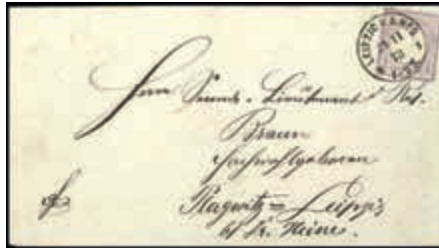 LEIPZIG
11
Herrn Seconde-Lieutenant d. Res.
Braun
Hochwohlgeboren
Plagwitz = Leipzig
b/ Dr. Heine.